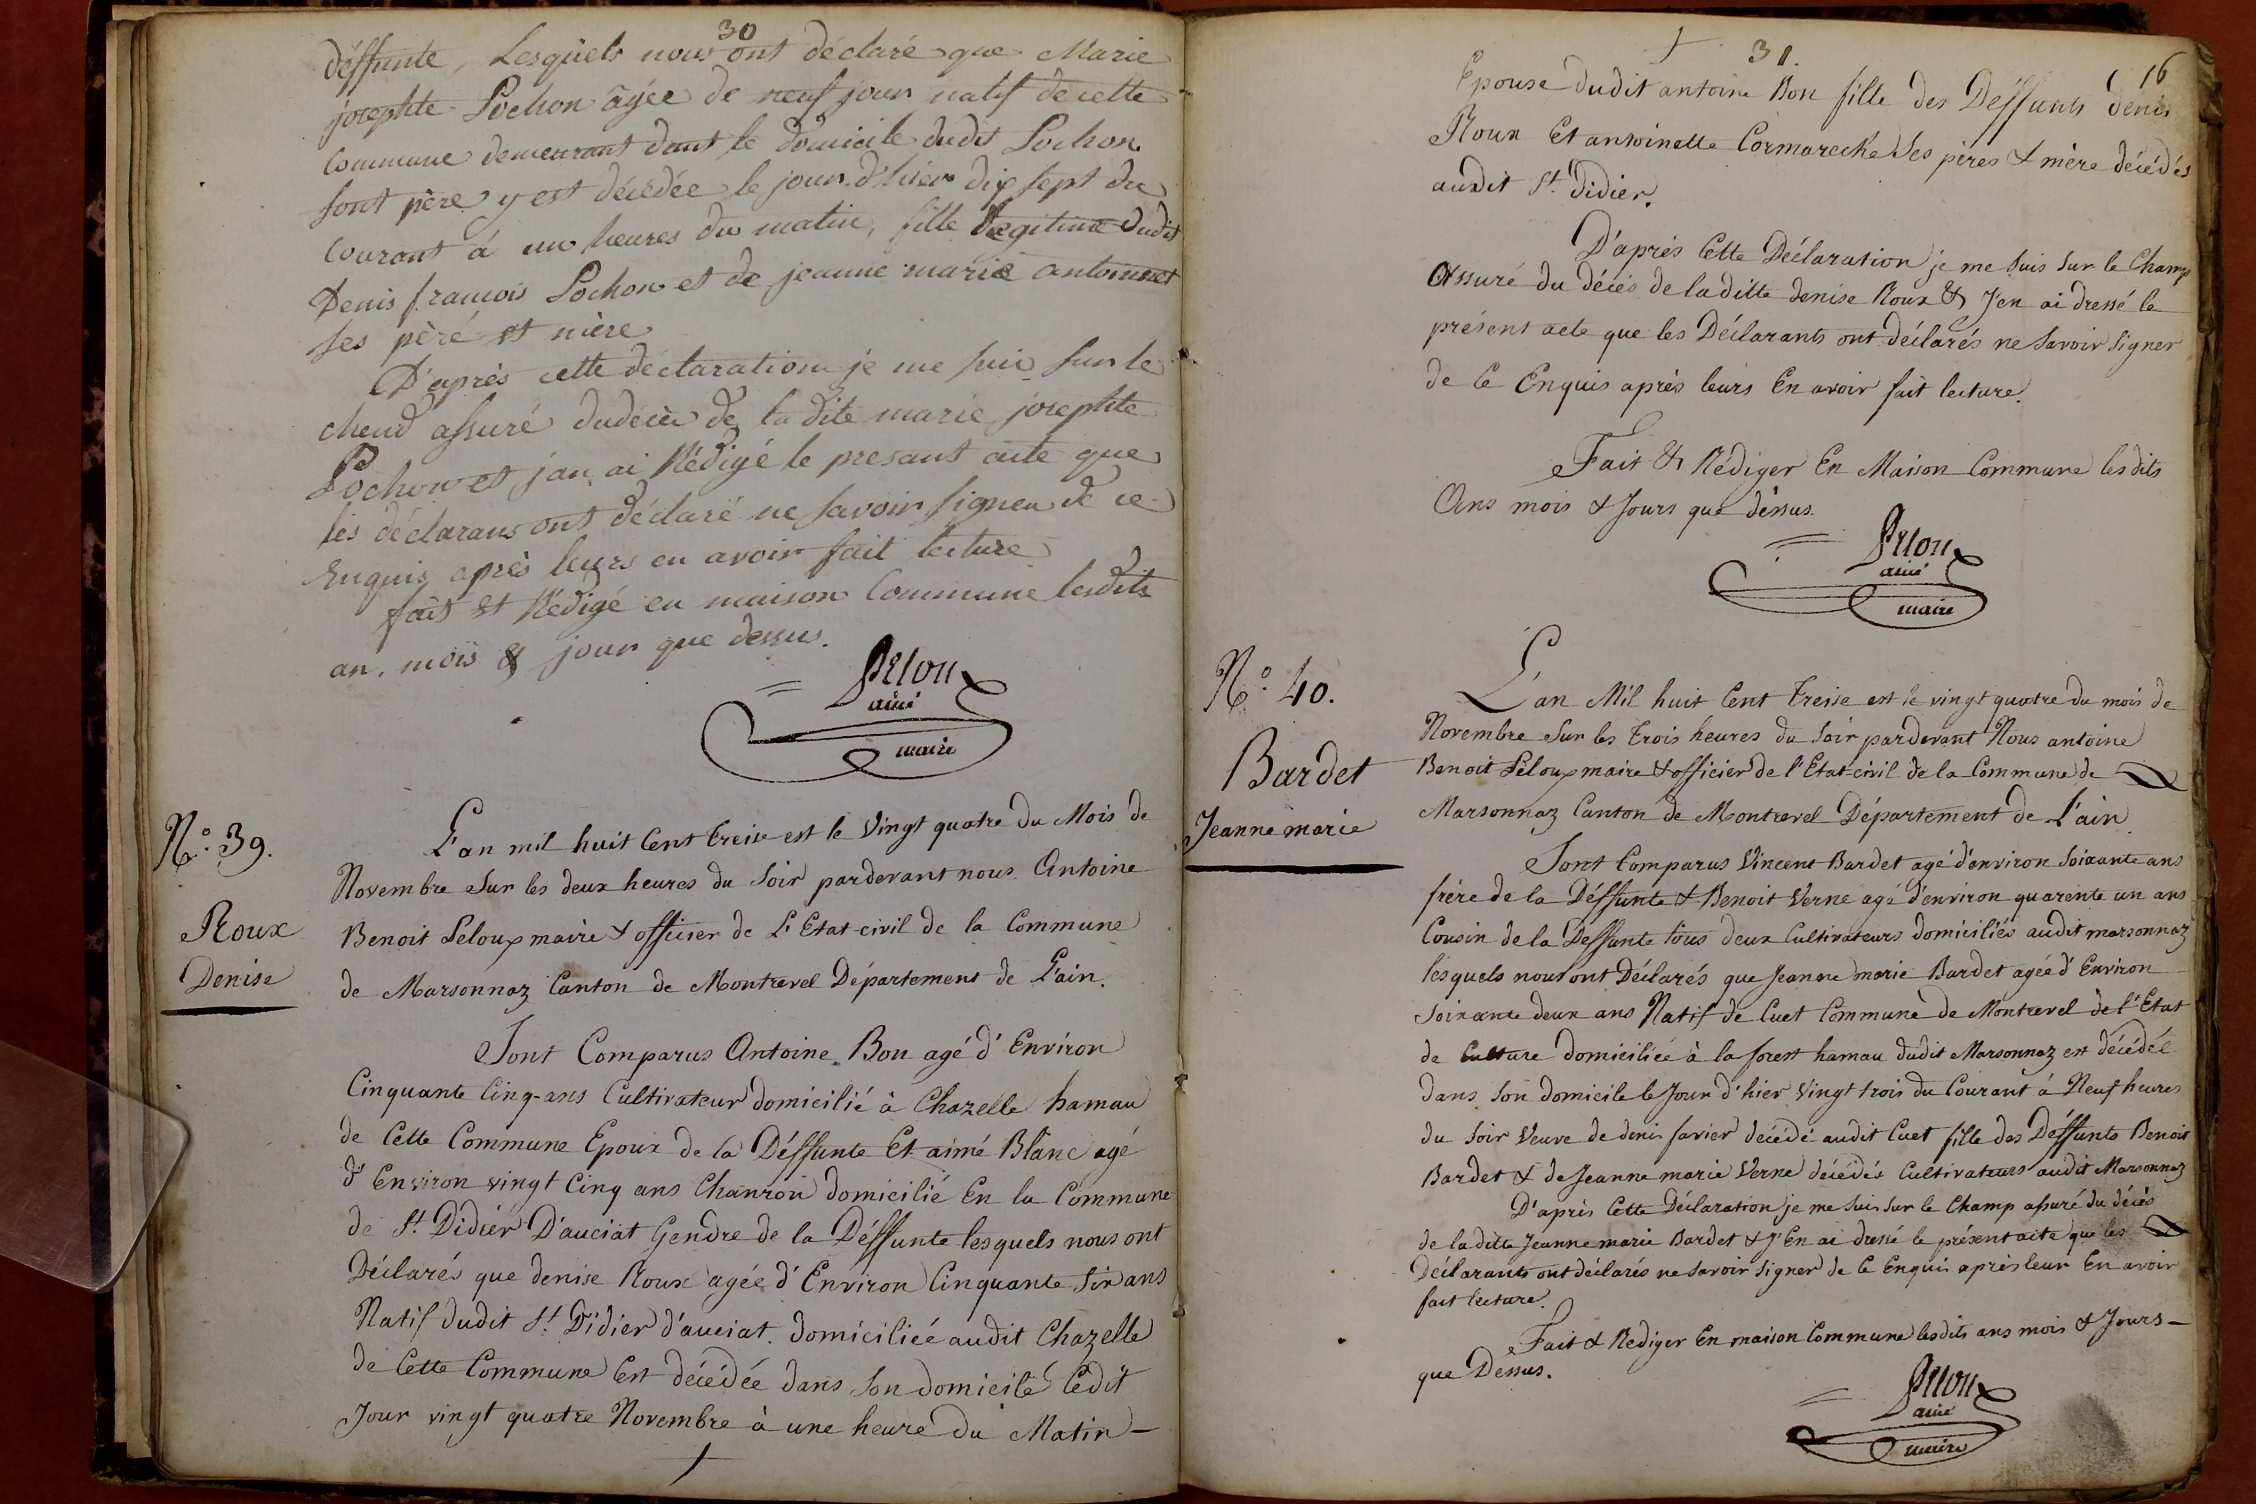 30
déffunte, Lesquels nous ont déclaré que Marie
josephte Pochon âgée de neuf jour natif de cette
Commune demeurant dant le domicile dudit Pochon
sont père y est décédée le jour d'hier dix sept du
Courant à un heures du matin, fille légitime dudit
Denis françois Pochon et de jeanne marie antoinnet
ses père et mère
D'après cette déclaration je me suis sur le
chend assuré dudécès de la dite marie josephte
Pochon et j'an ai Rédigé le presant acte que
les déclarans ont déclaré ne savoir signeu de ce
Enquis après leurs en avoir fait lecture
fait et Rédigé en maison Commune lesdits
an, mois & jour que dessus.
Pelou
ainé
maire
N.o 39.
Roux
Denise
L'an mil huit Cent treise est le Vingt quatre du Mois de
Novembre Sur les deux heures du Soir pardevant nous Antoine
Benoit Peloux maire & officier de L'Etat-civil de la Commune
de Marsonnaz Canton de Montrevel Département de L'ain.
Sont Comparus Antoine Bon agé d'Environ
Cinquante Cinq-ans Cultivateur domicilié à Chazelle hamau
de Cette Commune Epoux de la Déffunte Et aimé Blanc agé
d'Environ vingt Cinq ans Chanron domicilié En la Commune
de St. Didier D'auciat Gendre de la Déffunte lesquels nous ont
Déclarés que denise Roux agée d'Environ Cinquante Six ans
Natif dudit St. Didier d'auciat domiciliée audit Chazelle
de Cette Commune Est décédée dans Son domicile Cedit
Jour vingt quatre Novembre à une heure du Matin —
31.
16
Epouse dudit antoine Bon fille des Déffunts denis
Roux Et antoinette Cormareche Ses pères & mère décédés
audit St. Didier.
D'après Cette Déclaration je me Suis Sur le Champ
Assuré du décès de laditte denise Roux & J'en ai dressé le
présent acte que les Déclarants ont déclarés ne Savoir Signer
de Ce Enquis après leurs En avoir fait lecture.
Fait & Rédiger En Maison Commune lesdits
Ans mois & Jours que dessus.
Pelou
ainé
maire
N.o 40.
Bardet
Jeanne marie
L'an Mil huit Cent treise est le vingt quatre du mois de
Novembre Sur les trois heures du Soir pardevant Nous antoine
Benoit Peloux maire & officier de l'Etat-civil de la Commune de
Marsonnaz Canton de Montrevel Département de L'ain
Sont Comparus Vincent Bardet agé d'environ Soixante ans
frère de la Déffunte & Benoit Verne agé d'environ quarente un ans
Cousin de la Deffunte tous deux Cultivateurs domiciliés audit marsonnaz
lesquels nous ont Déclarés que Jeanne marie Bardet agée d'Environ
Soixante deux ans Natif de Cuet Commune de Montrevel de l'Etat
de Culture domiciliée à la forest hamau dudit Marsonnaz est décédée
dans Son domicile le Jour d'hier Vingt trois du Courant à Neuf heures
du Soir Veuve de denis favier décédé audit Cuet fille des Déffunts Benoit
Bardet & de Jeanne marie Verne décédés Cultivateurs audit Marsonnaz
D'après Cette Déclaration je me Suis Sur le Champ assuré du décès
de laditte Jeanne marie Bardet & J'En ai dressé le présent acte que les
Déclarants ont déclarés ne Savoir Signer de Ce Enquis après leur En avoir
fait lecture.
Fait & Rediger En maison Commune lesdits ans mois & Jours —
que Dessus.
Pelou
ainé
maire